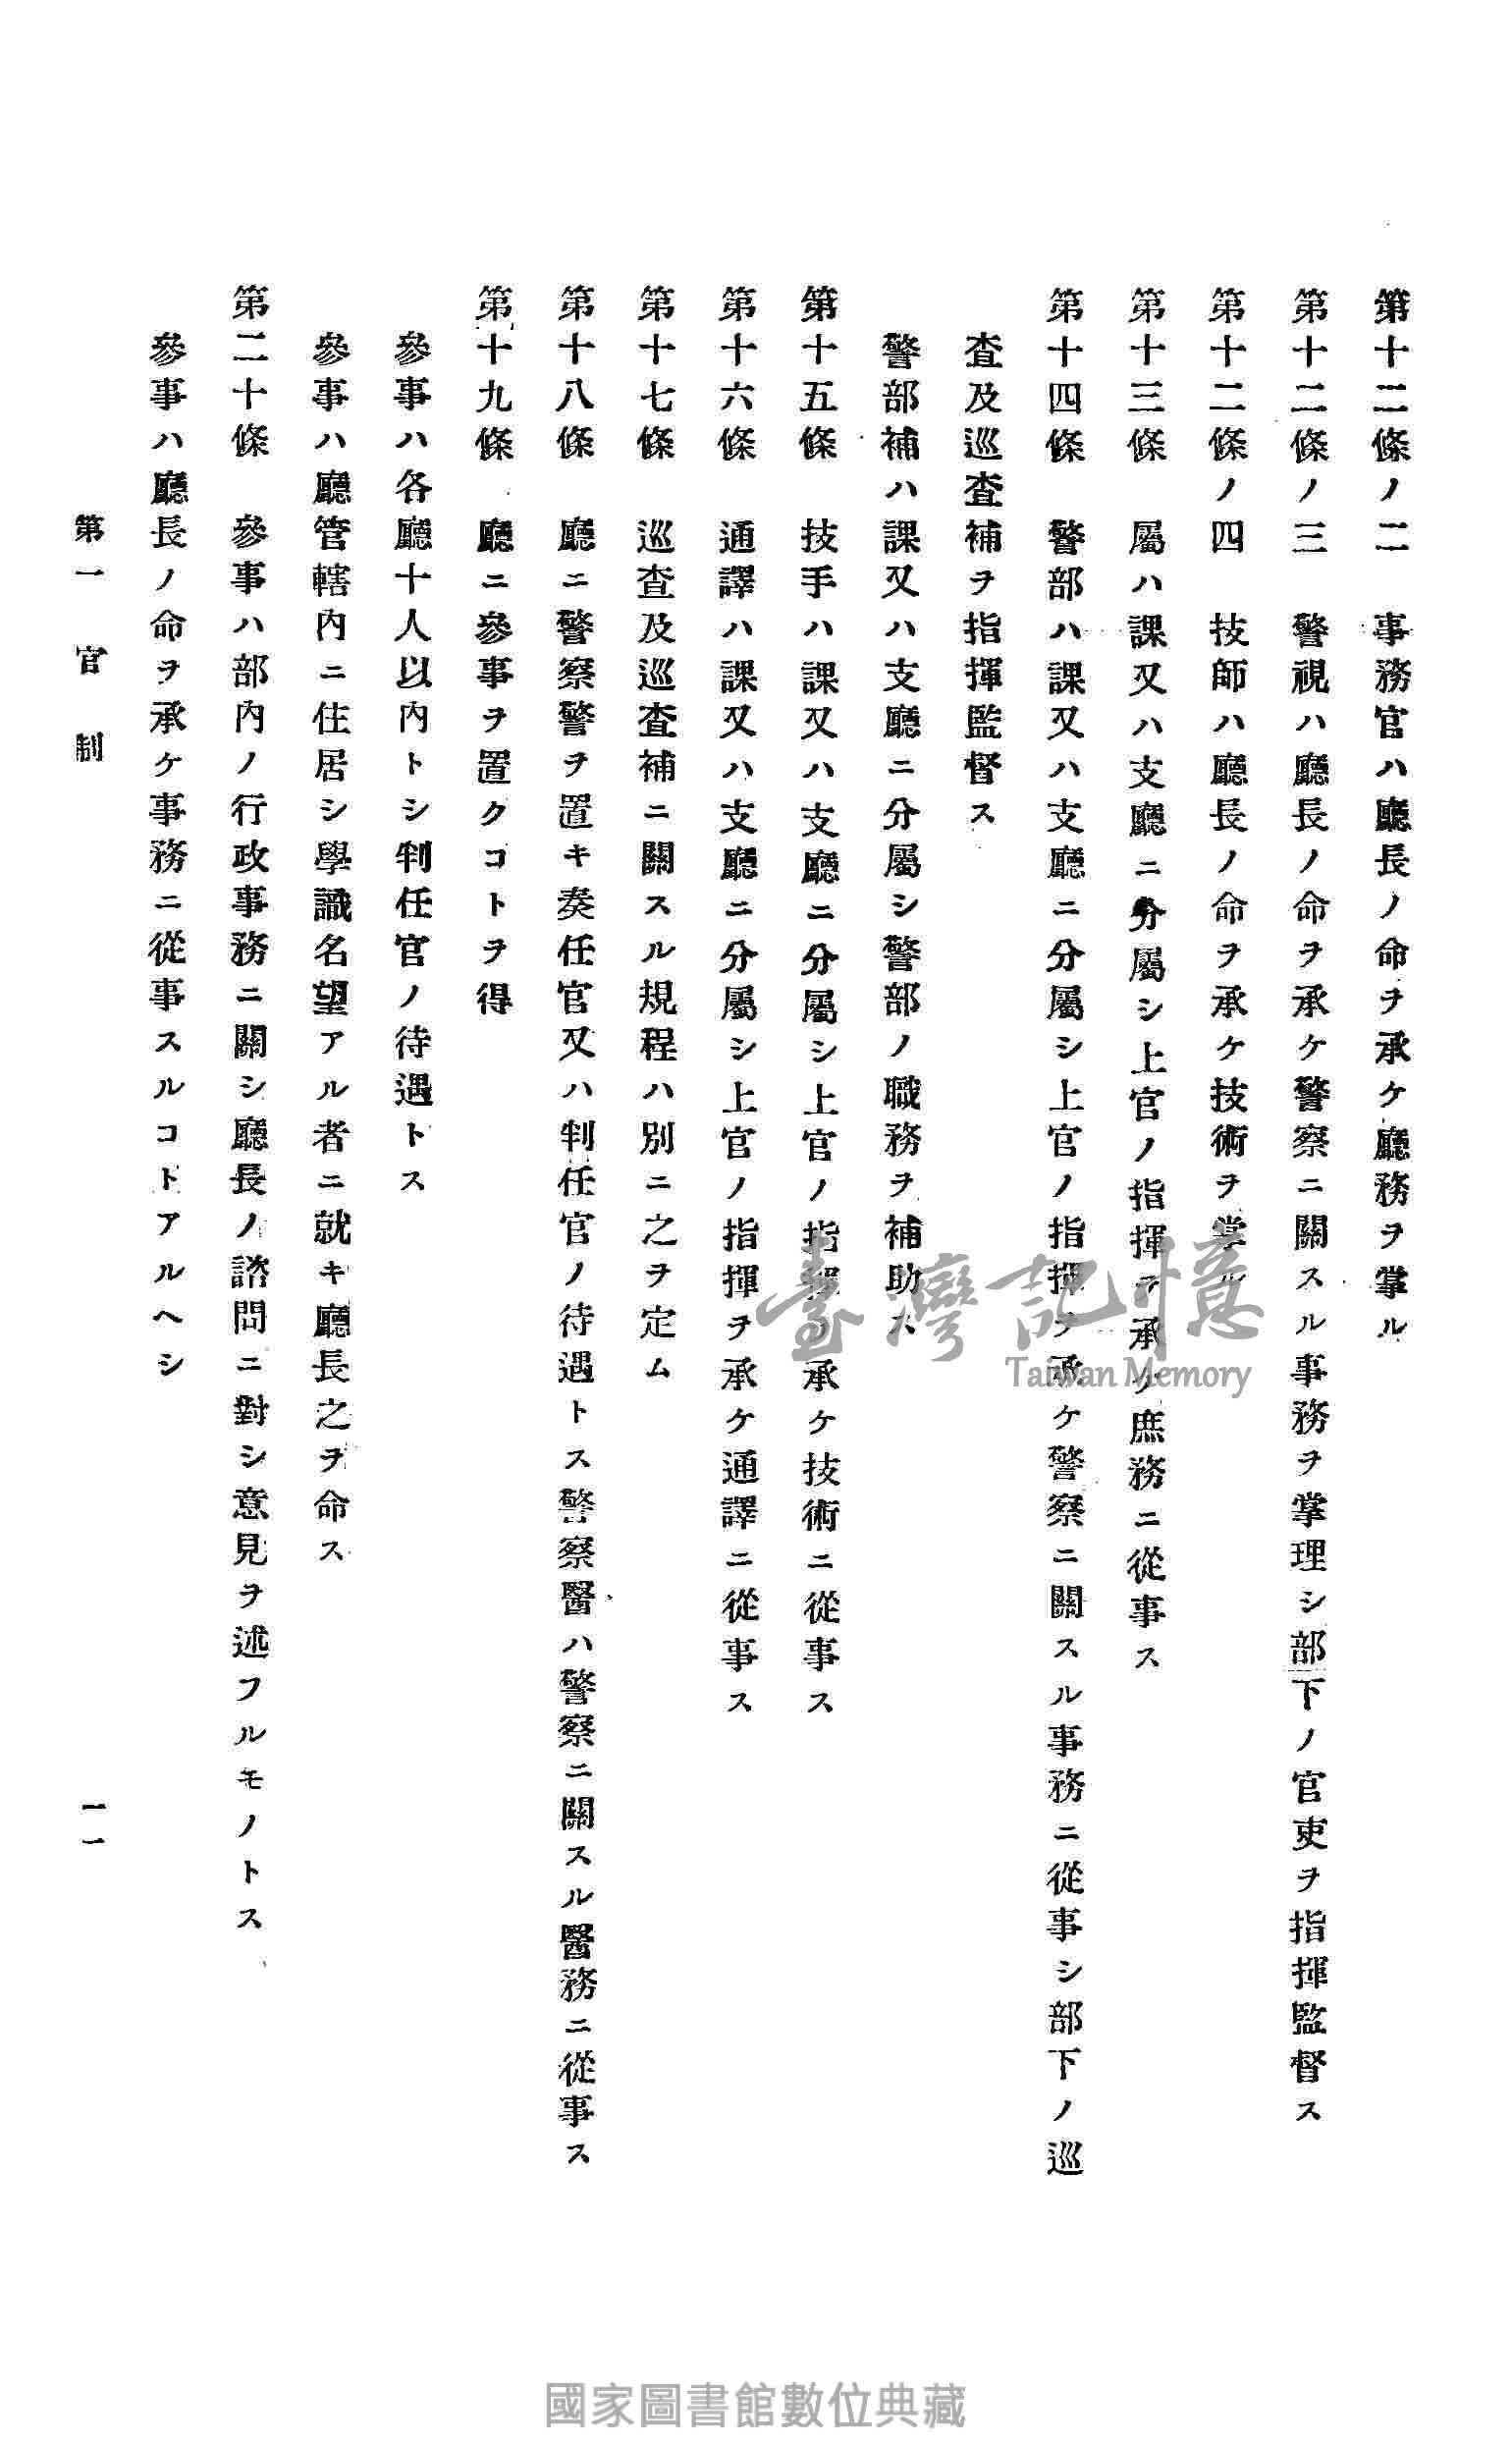 第十二條ノ二　事務官ハ廳長ノ命ヲ承ケ廳務ヲ掌ル
第十二條ノ三　警視ハ廳長ノ命ヲ承ケ警察ニ關スル事務ヲ掌理シ部下ノ官吏ヲ指揮監督ス
第十二條ノ四　技師ハ廳長ノ命ヲ承ケ技術ヲ掌ル
第十三條　屬ハ課又ハ支廳ニ分屬シ上官ノ指揮ヲ承ケ庶務ニ從事ス
第十四條　警部ハ課又ハ支廳ニ分屬シ上官ノ指揮ヲ承ケ警察ニ關スル事務ニ從事シ部下ノ巡
査及巡査補ヲ指揮監督ス
警部補ハ課又ハ支廳ニ分屬シ警部ノ職務ヲ補助ス
第十五條　技手ハ課又ハ支廳ニ分屬シ上官ノ指揮ヲ承ケ技術ニ從事ス
第十六條　通譯ハ課又ハ支廳ニ分屬シ上官ノ指揮ヲ承ケ通譯ニ從事ス
第十七條　巡査及巡査補ニ關スル規程ハ別ニ之ヲ定ム
第十八條　廳ニ警察醫ヲ置キ奏任官又ハ判任官ノ待遇トス警察醫ハ警察ニ關スル醫務ニ從事ス
第十九條　廳ニ參事ヲ置クコトヲ得
參事ハ各廳十人以內トシ判任官ノ待遇トス
參事ハ廳管轄內ニ住居シ學識名望アル者ニ就キ廳長之ヲ命ス
第二十條　參事ハ部內ノ行政事務ニ關シ廳長ノ諮問ニ對シ意見ヲ述フルモノトス
參事ハ廳長ノ命ヲ承ケ事務ニ從事スルコトアルヘシ
第一　官　制
一一
臺灣記憶
Taiwan Memory
國家圖書館數位典藏